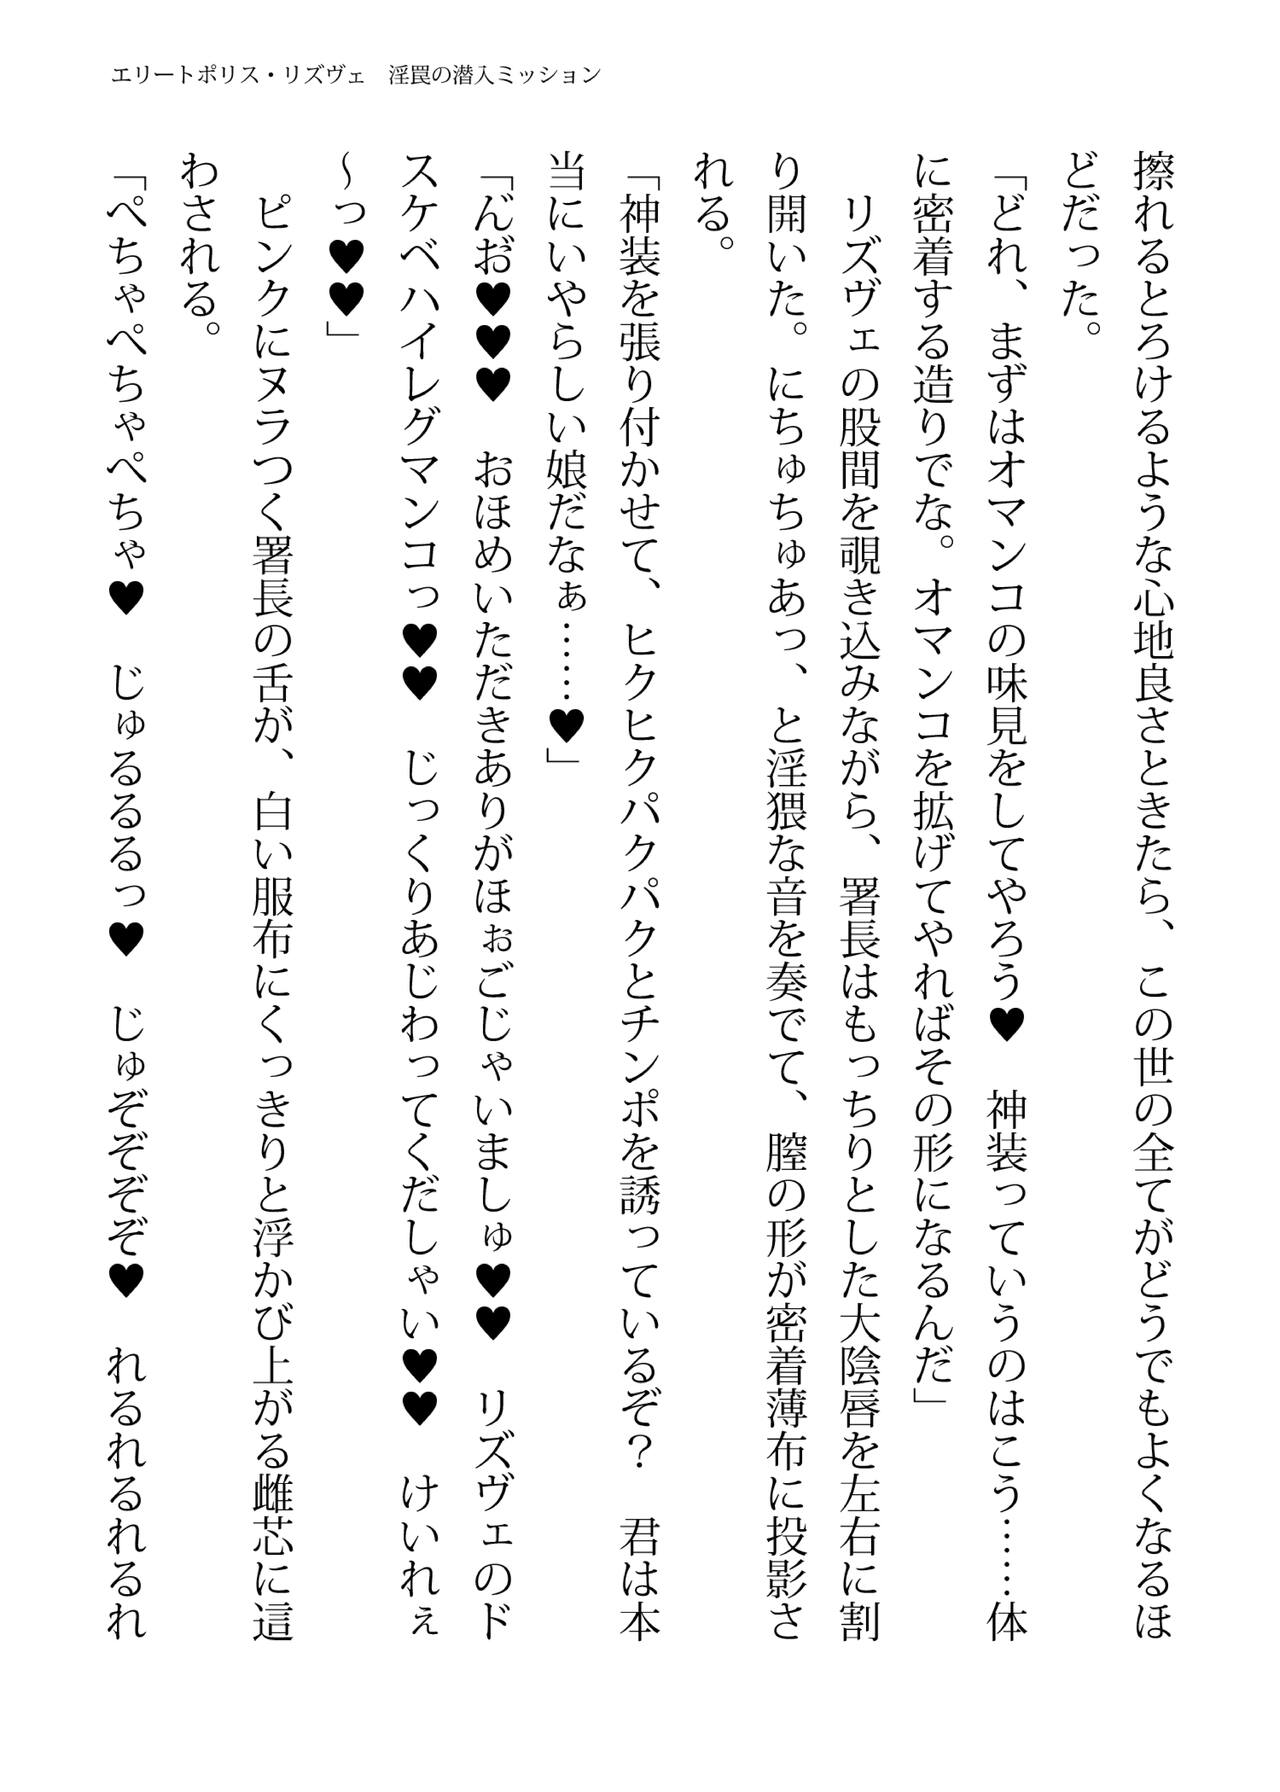 エリートポリス・リズヴェ　淫罠の潜入ミッション
擦れるとろけるような心地良さときたら、この世の全てがどうでもよくなるほ
どだった。
「どれ、まずはオマンコの味見をしてやろう♥　神装っていうのはこう……体
に密着する造りでな。オマンコを拡げてやればその形になるんだ」
　リズヴェの股間を覗き込みながら、署長はもっちりとした大陰唇を左右に割
り開いた。にちゅちゅあっ、と淫猥な音を奏でて、膣の形が密着薄布に投影さ
れる。
「神装を張り付かせて、ヒクヒクパクパクとチンポを誘っているぞ？　君は本
当にいやらしい娘だなぁ……♥」
「んお♥♥♥　おほめいただきありがほぉごじゃいましゅ♥♥　リズヴェのド
スケベハイレグマンコっ♥♥　じっくりあじわってくだしゃい♥♥　けいれぇ
～っ♥♥」
　ピンクにヌラつく署長の舌が、白い服布にくっきりと浮かび上がる雌芯に這
わされる。
「ぺちゃぺちゃぺちゃ♥　じゅるるるっ♥　じゅぞぞぞぞ♥　れるれるれるれ